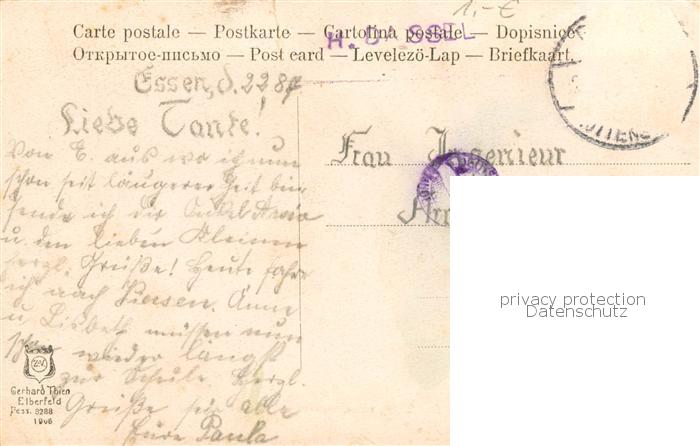 1.- €
Carte postale — Postkarte — Cartolina postale — Dopisnice
H. DASSEL
Открытое-письмо — Post card — Levelező-Lap — Briefkaart.
Essen, d. 22 8
Liebe Tante!
Von E. aus wo ich nun
schon seit längerer Zeit bin
sende ich dir Onkel
u. den lieben Kleinen
herzl. Grüße! Heute fahre
ich nach Viersen. Änne
u. Lisbeth müssen nun
schon wieder längst
zur Schule. Herzl.
Grüße für alle
Eure Paula
Frau Ingenieur
privacy protection
Datenschutz
Gerhard Thien
Elberfeld
Dess. 3288
1906